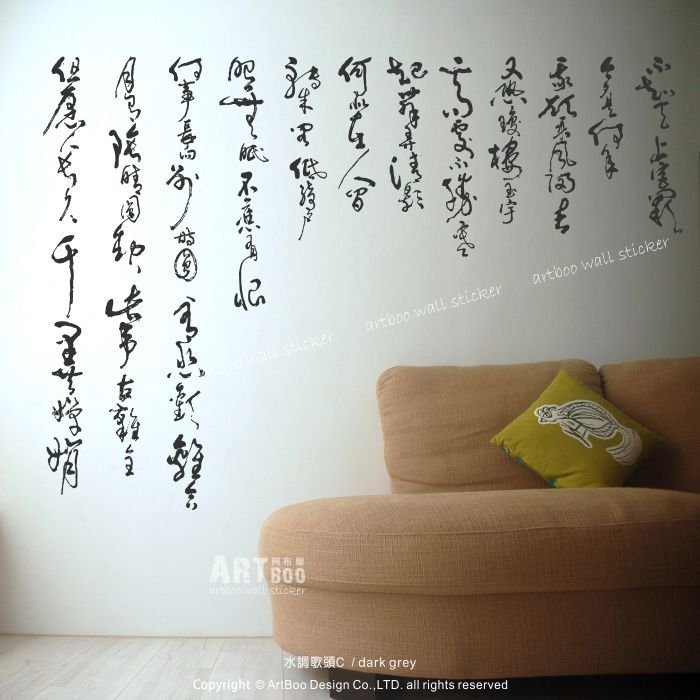 不知天上宮闕
今夕是何年
我欲乘風歸去
又恐瓊樓玉宇
高處不勝寒
起舞弄清影
何似在人間
轉朱閣低綺戶
照無眠不應有恨
何事長向別時圓人有悲歡離合
月有陰晴圓缺此事古難全
但願人長久千里共嬋娟
artboo wall sticker
artboo wall sticker
artboo wall sticker
ART BOO 阿布屋
artboo wall sticker
水調歌頭C / dark grey
Copyright © ArtBoo Design Co.,LTD. all rights reserved